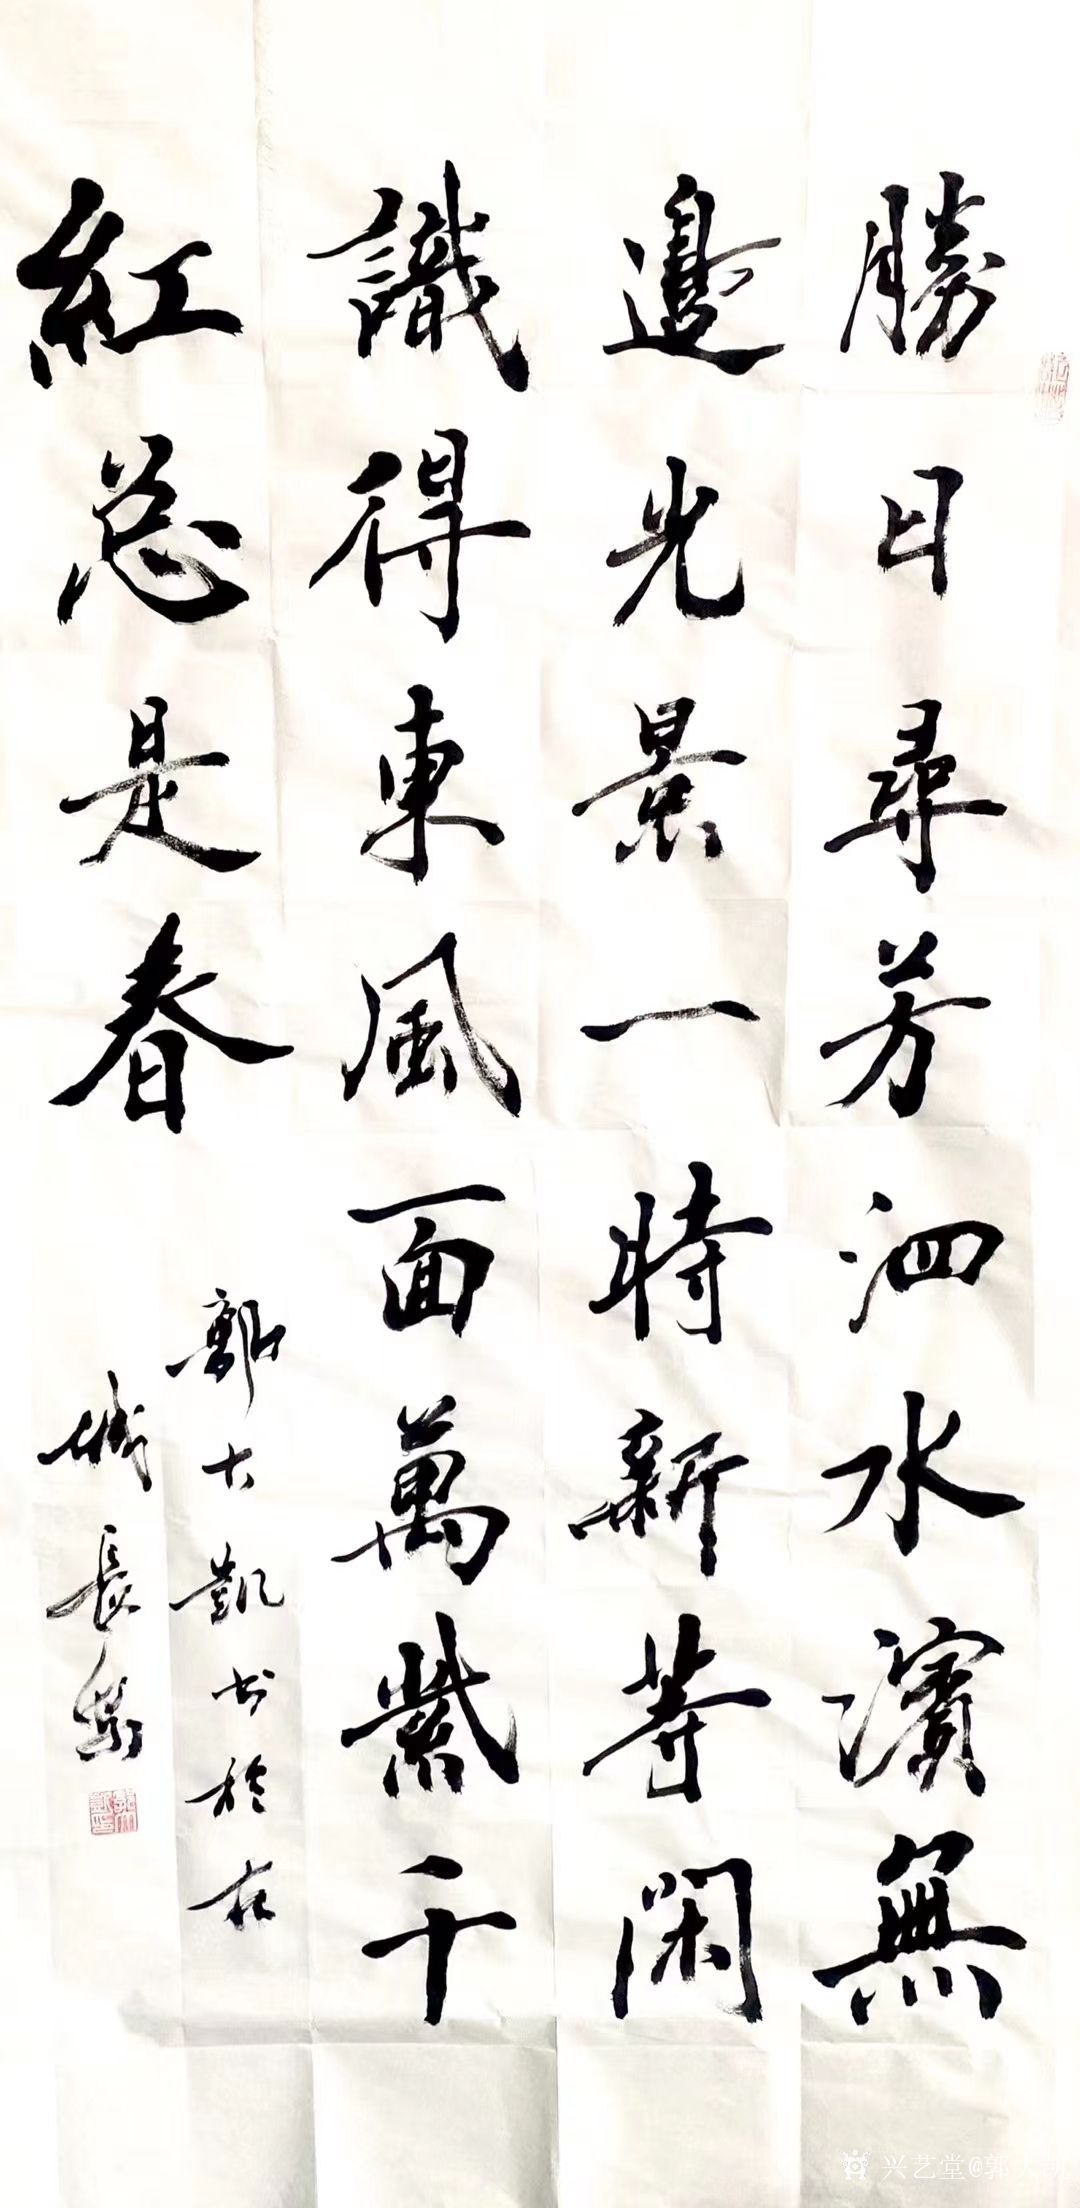 勝日尋芳泗水濱無
邊光景一時新等閑
識得東風面萬紫千
紅总是春
郭大凱书於
城長
兴艺堂@郭大凯